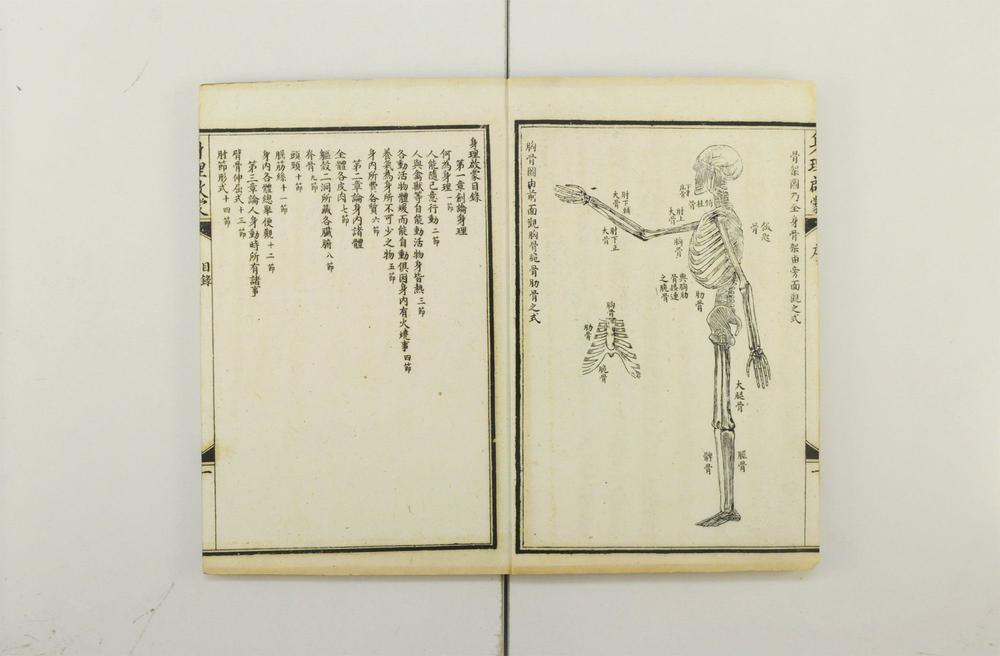 骨架圖乃全身骨架由旁面觀之式
肘下輔大骨
肘下正大骨
肘上大骨
胸骨
與胸肋骨接連之脆骨
肋骨
大腿骨
髀骨
胸骨
肋骨
脆骨
胸骨圖由前面觀胸骨脆骨肋骨之式
身理啟蒙目錄
第一章創論身理
何為身理 一節
人能隨己意行動 二節
人與禽獸等自能動活物身皆熱 三節
各動活物體煖而能自動俱因身內有火燒事 四節
養氣為身所不可少之物 五節
身內所費各質 六節
第二章論身內諸體
全體各皮肉 七節
軀殼二洞所藏各臟腑 八節
脊骨 九節
頭頸 十節
腦筋絲 十一節
身內各體總畢便觀 十二節
第三章論人身動時所有諸事
臂骨伸屈式 十三節
肘節形式 十四節
身理啟蒙
目錄
一